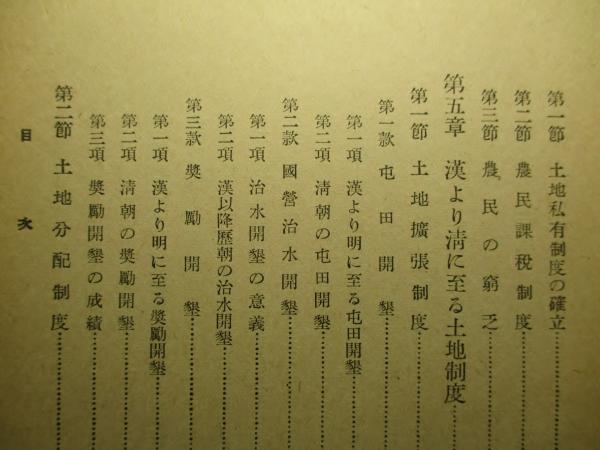 第一節 土地私有制度の確立
第二節 農民課税制度
第三節 農民の窮乏
第五章 漢より淸に至る土地制度
第一節 土地擴張制度
第一款 屯田開墾
第一項 漢より明に至る屯田開墾
第二項 淸朝の屯田開墾
第二款 國營治水開墾
第一項 治水開墾の意義
第二項 漢以降歷朝の治水開墾
第三款 奬勵開墾
第一項 漢より明に至る奬勵開墾
第二項 淸朝の奬勵開墾
第三項 奬勵開墾の成績
第二節 土地分配制度
目次